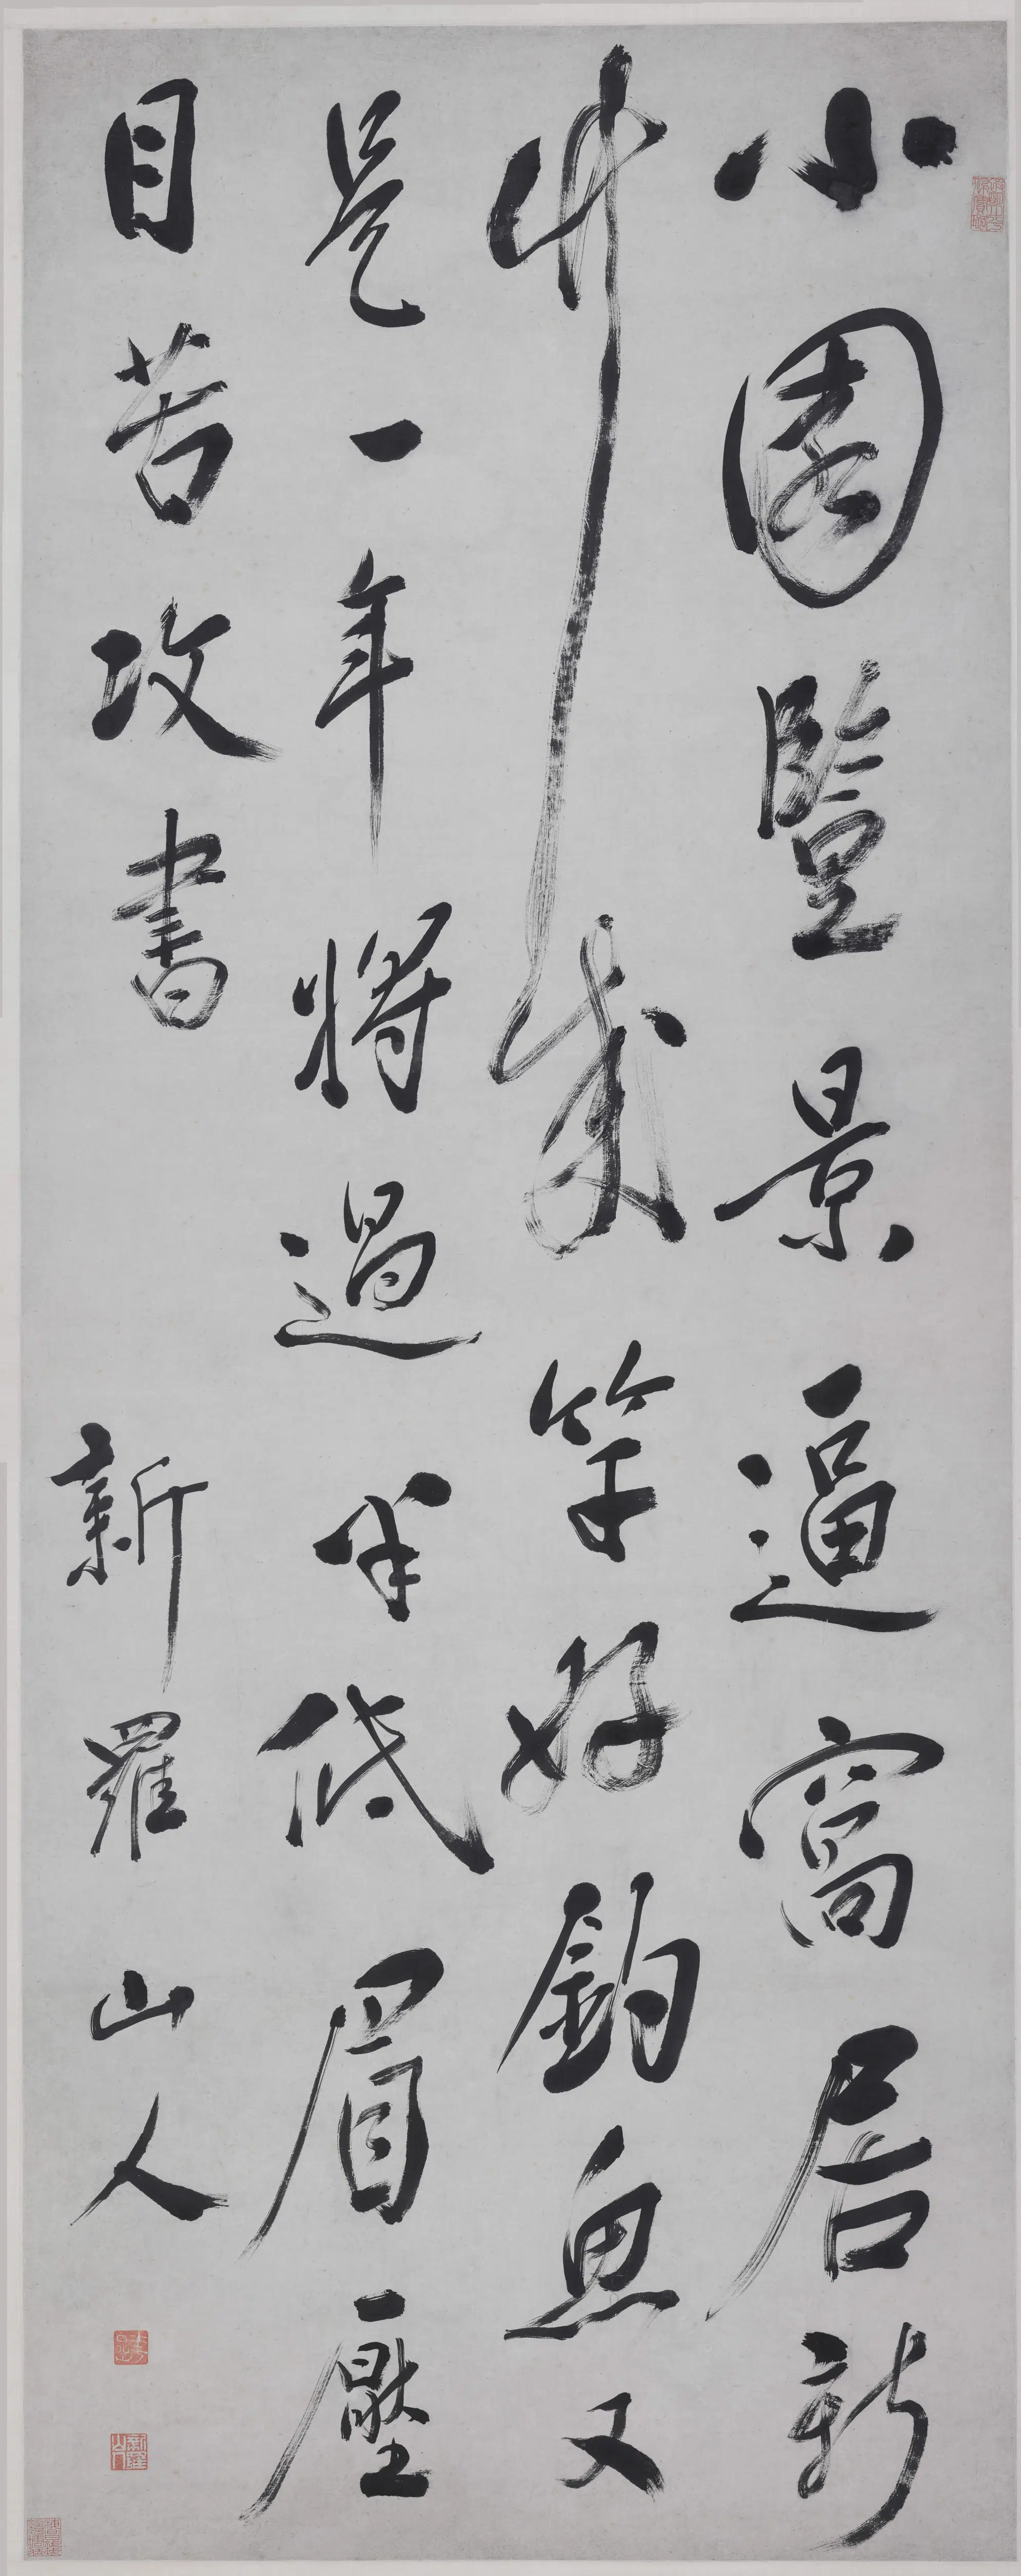 小園豎景逼窩居新
竹成竿好釣魚又
是一年將過半低眉壓
目苦攻書
新羅山人